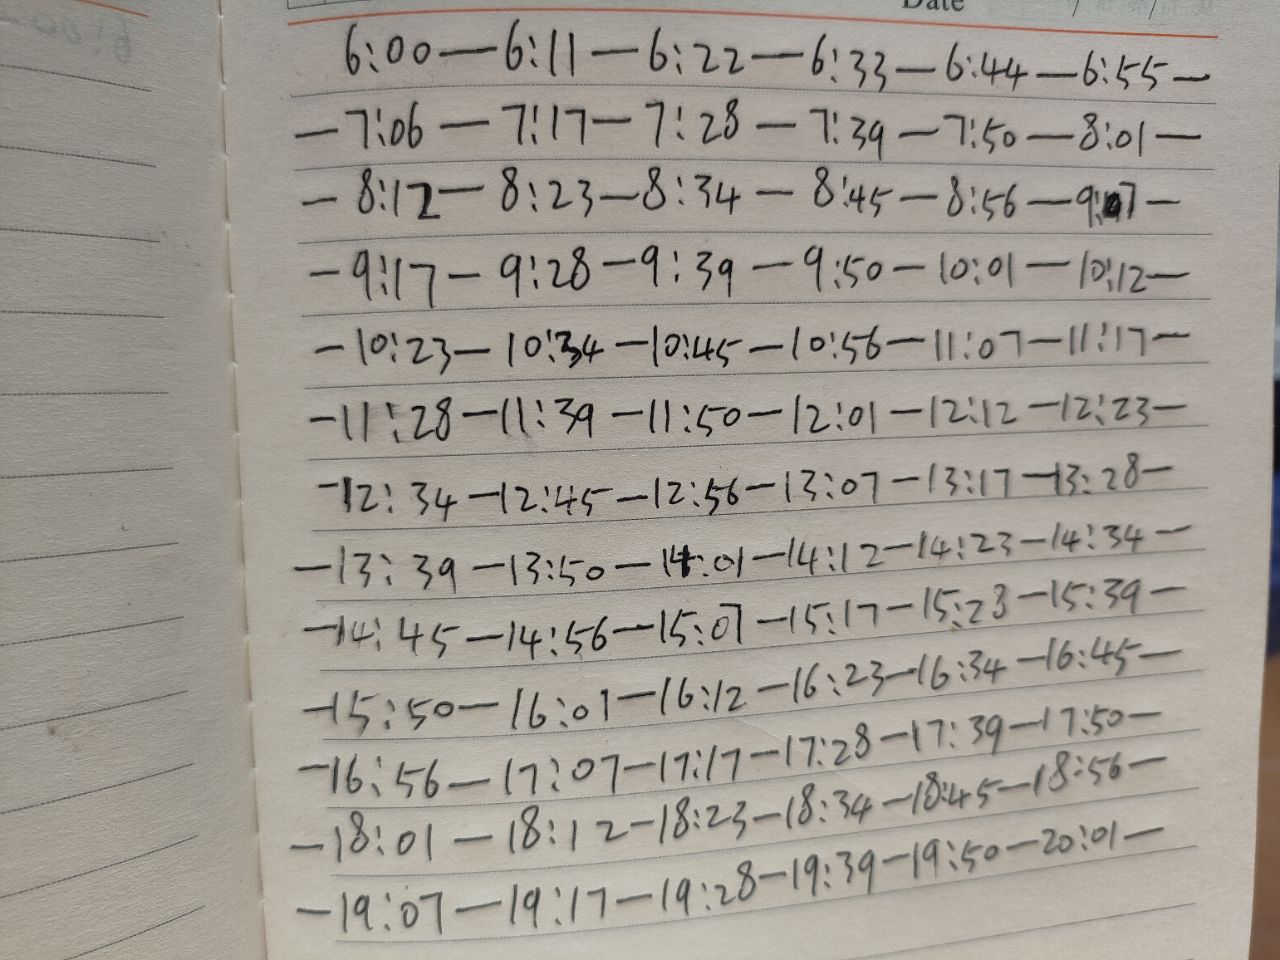 Date
6:00—6:11—6:22—6:33—6:44—6:55—
—7:06—7:17—7:28—7:39—7:50—8:01—
—8:12—8:23—8:34—8:45—8:56—9:07—
—9:17—9:28—9:39—9:50—10:01—10:12—
—10:23—10:34—10:45—10:56—11:07—11:17—
—11:28—11:39—11:50—12:01—12:12—12:23—
—12:34—12:45—12:56—13:07—13:17—13:28—
—13:39—13:50—14:01—14:12—14:23—14:34—
—14:45—14:56—15:07—15:17—15:23—15:39—
—15:50—16:01—16:12—16:23—16:34—16:45—
—16:56—17:07—17:17—17:28—17:39—17:50—
—18:01—18:12—18:23—18:34—18:45—18:56—
—19:07—19:17—19:28—19:39—19:50—20:01—